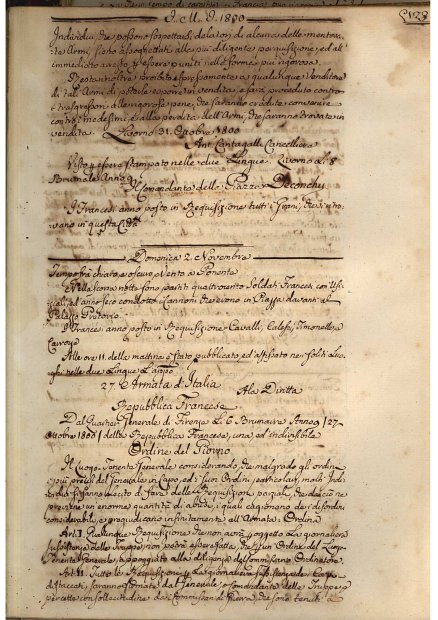 Individui che possono sospettarsi delatori di alcuna delle mentova-
te Armi siano assoggettati alle più diligenti perquisizioni, ed all'
immediato arresto, ed essere puniti nelle forme più rigorose.
Resta inoltre proibito espressamente a qualunque Venditore
di tali Armi di poterle esporre in vendita, e sarà proceduto contro
i trasgressori alle rigorose pene, che saranno credute convenire
contro i medesimi, e alla perdita dell'Armi, che saranno trovate in
vendita. Livorno 31. Ottobre 1800
Ant. Cantagalli Cancelliere
Visto essere stampato nelle due Lingue. Livorno li 8
Brumale Anno 9.
Comandante della Piazza
I Francesi anno posto in Requisizione tutti i che si tro-
vano in questa Città
Domenica 2. Novembre
Tempo frà chiaro, e oscuro, Vento a Ponente
Nella scorsa notte sono partiti quattrocento Soldati Francesi con Uf-
ed anno seco condotto i Cannoni che erono in Piazza davanti al
Palazzo Pretorio.
I Francesi anno posto in Requisizione Cavalli, Calessi, Timonelle e
Carrozze
Alle ore 11. della mattina è stato pubblicato ed affissato nei soliti Luo-
ghi nelle due Lingue
27. Armata d'Italia
Ala Diritta
Repubblica Francese
Dal Quartier Generale di Firenze li 6 Brumaire Anno 9 /27-
Ottobre 1800/ della Repubblica Francese, una ed indivisibile
Ordine del Giorno
Il Luogo Tenente Generale considerando, che malgrado gli ordini
più precisi del Generale in Capo, ed i suoi Ordini particolari, molti Indi-
vidui si fanno lecito di fare delle Requisizioni parziali, che da ciò ne
proviene un enorme quantità di abusi, i quali cagionano dei disordini
considerabili, e pregiudicano infinitamente all'Armata: Ordina
Art. I. Qualunque Requisizione che non avrà per oggetto la giornaliera
sussistenza delle Truppe non potrà essere fatta, che di un Ordine del Luogo
Tenente Generale, e appoggiato alla diligenza del Commissario Ordinatore.
Art. II. Tutte le Requisizioni per la giornaliera sussistenza dei Corpi
distaccati saranno fatte dal Generale, o Comandante delle Truppe, e
percette con sollecitudine dai Commissari di Guerra, che sono tenuti di